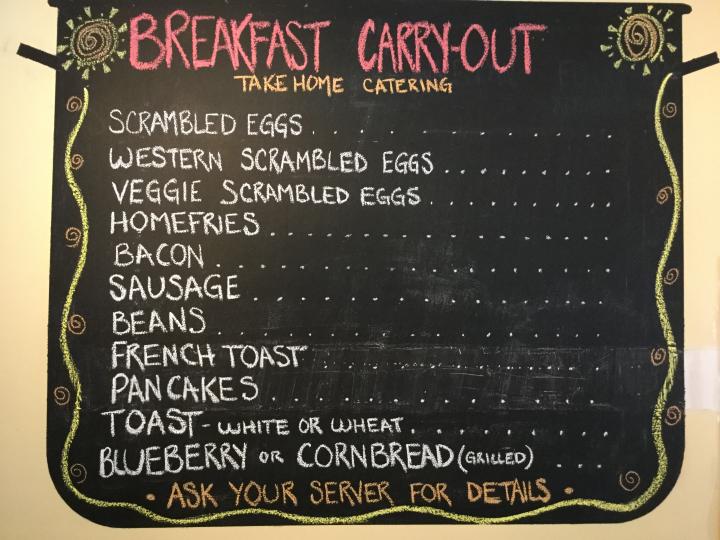 BREAKFAST CARRY-OUT
TAKE HOME CATERING
SCRAMBLED EGGS . . . . . . . . . .
WESTERN SCRAMBLED EGGS . . . . . . . . . .
VEGGIE SCRAMBLED EGGS . . . . . . . . . .
HOMEFRIES . . . . . . . . . . . . . . .
BACON . . . . . . . . . . . . . . .
SAUSAGE . . . . . . . . . . . . . . .
BEANS . . . . . . . . . . . . . . .
FRENCH TOAST . . . . . . . . . . . . . . .
PANCAKES . . . . . . . . . . . . . . .
TOAST - WHITE OR WHEAT . . . . . . . .
BLUEBERRY OR CORNBREAD (GRILLED) . . . .
• ASK YOUR SERVER FOR DETAILS •